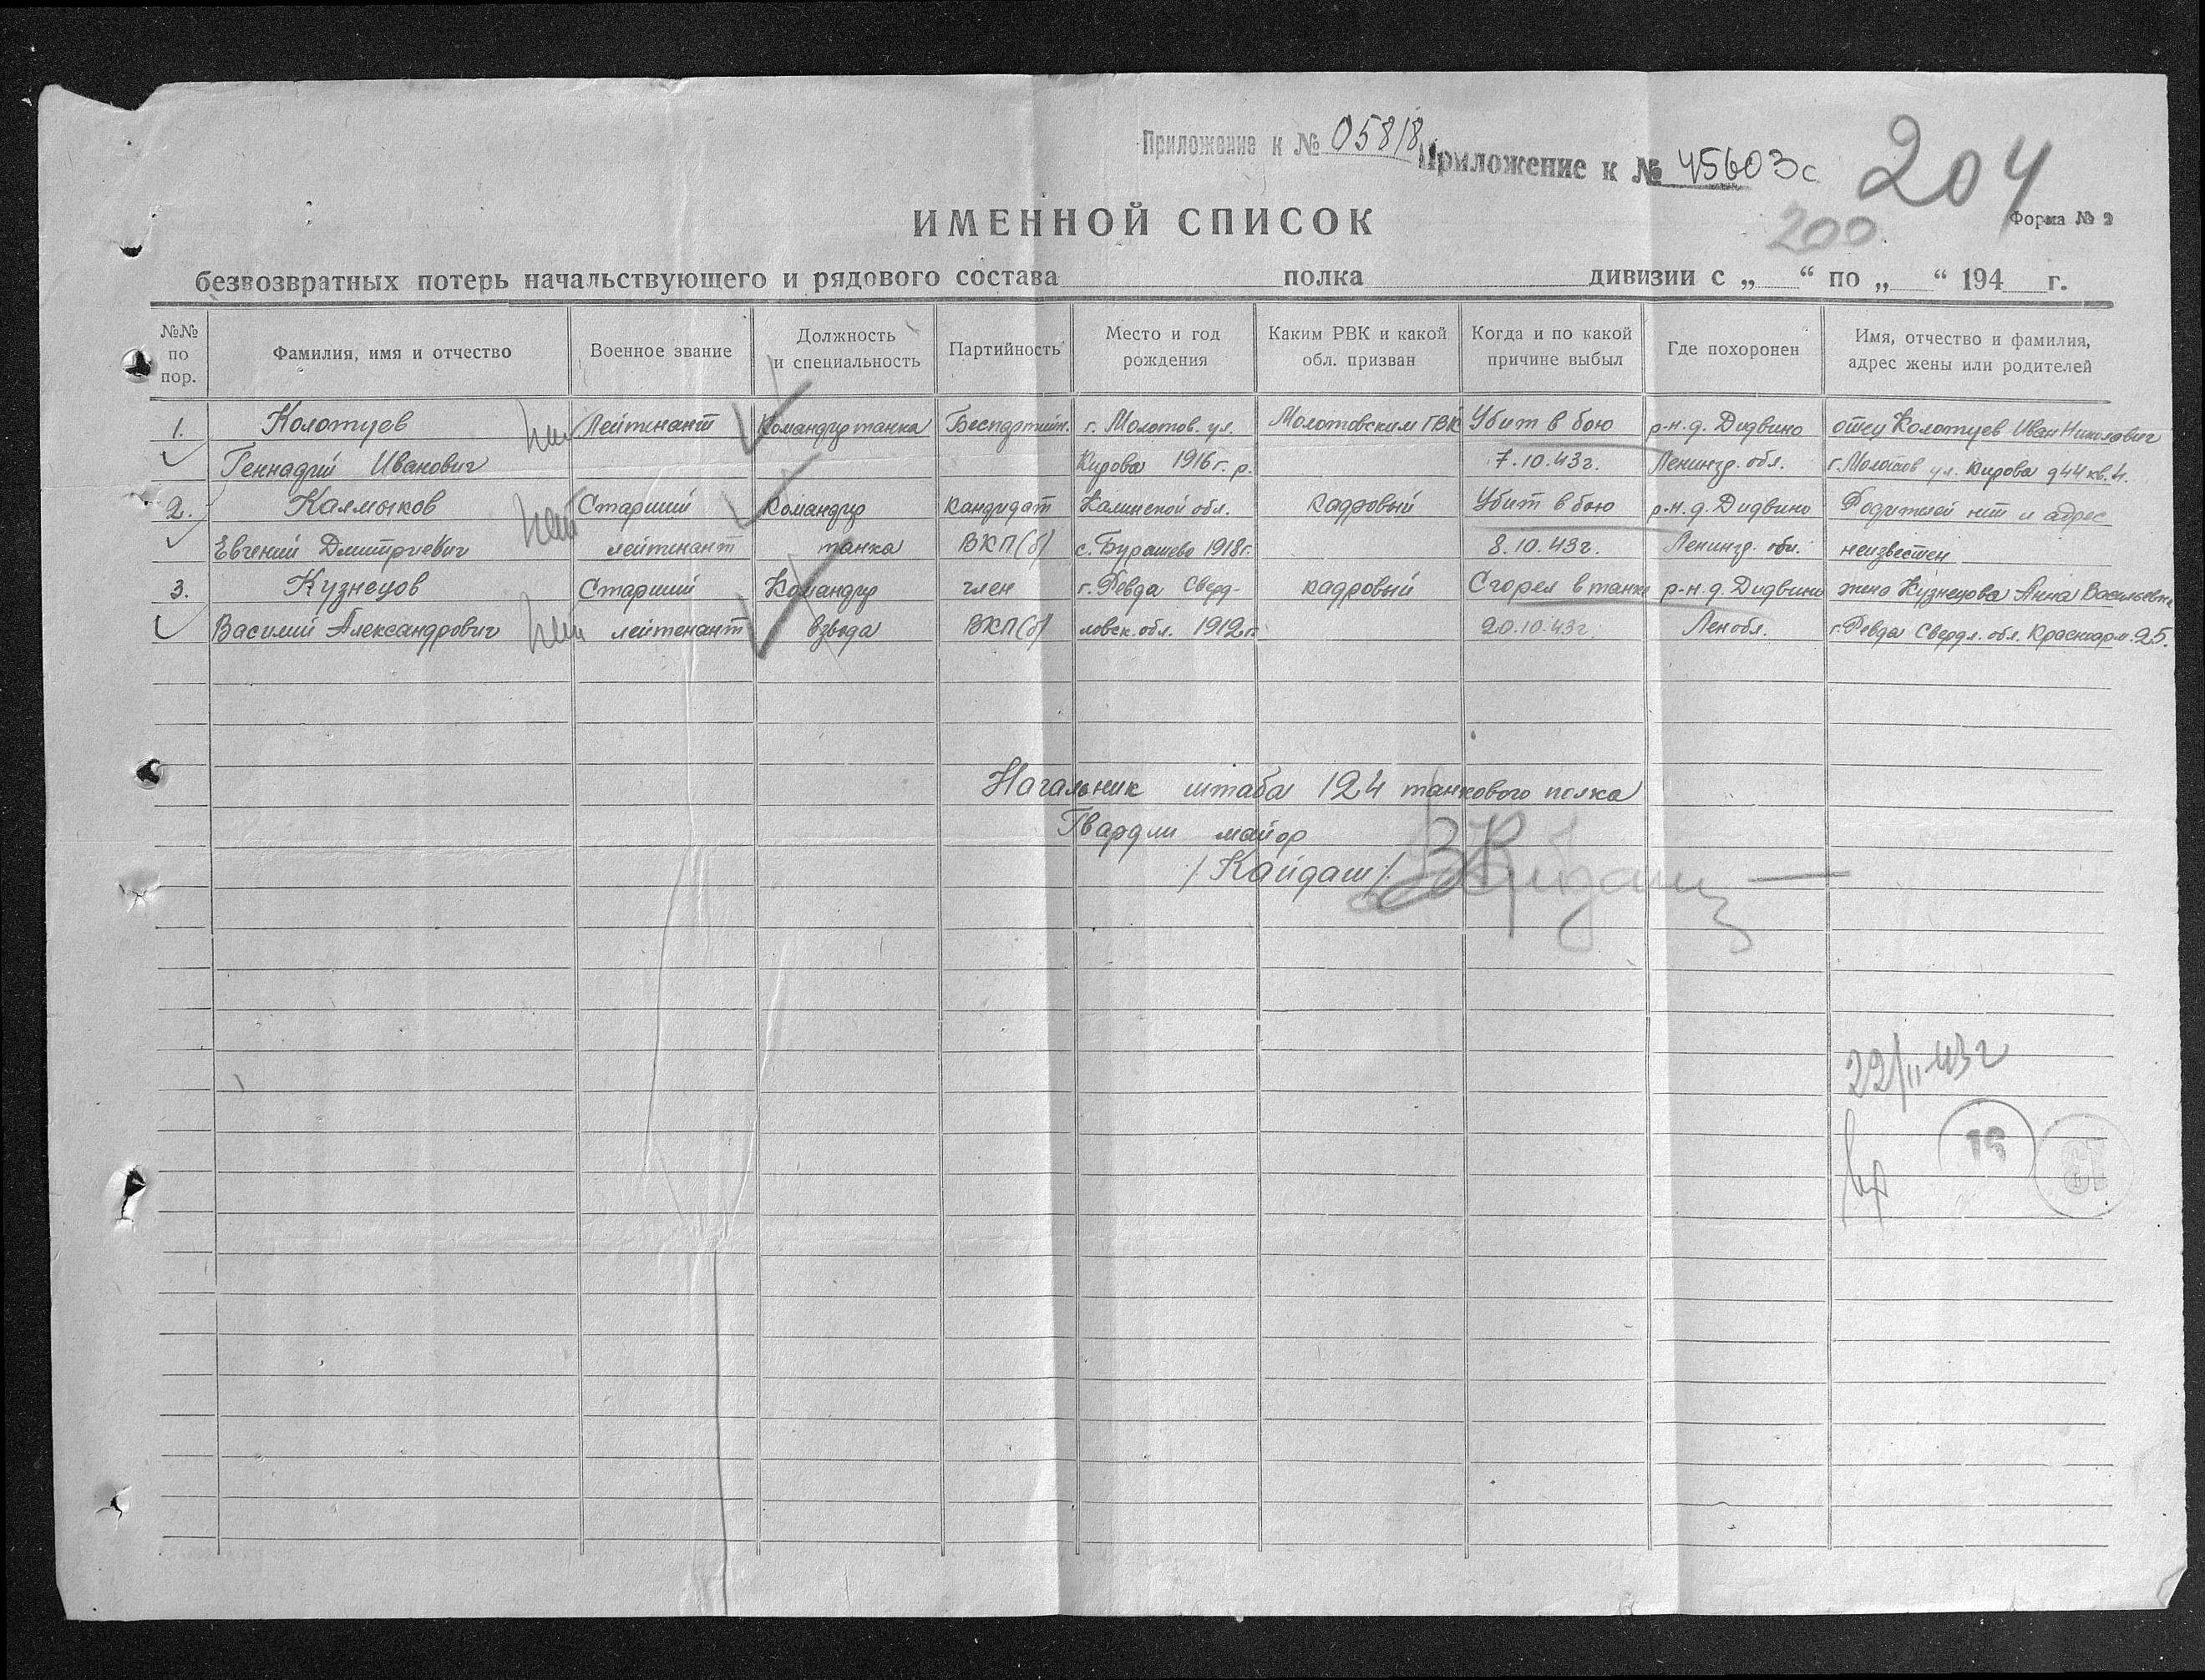 Приложение к № 05818
Приложение к № 45603с
204
200
Форма № 2
ИМЕННОЙ СПИСОК
безвозвратных потерь начальствующего и рядового состава полка дивизии с „ “ по „ “ 194 г.
№№ по пор.
Фамилия, имя и отчество
Военное звание
Должность и специальность
Партийность
Место и год рождения
Каким РВК и какой обл. призван
Когда и по какой причине выбыл
Где похоронен
Имя, отчество и фамилия, адрес жены или родителей
1. Колотуев нет Лейтенант Командир танка Беспартийн. г. Молотов. ул. Молотовским ГВК Убит в бою р-н. д. Дидвино отец Колотуев Иван Николович
Геннадий Иванович Кирова 1916 г. р. 7.10.43г. Ленингр. обл. г. Молотов ул. Кирова д 44 кв. 4.
2. Калмыков нет Старший Командир кандидат Калинской обл. кадровый Убит в бою р-н. д. Дидвино Родителей нет и адрес
Евгений Дмитриевич лейтенант танка ВКП(б) с. Бурашево 1918г. 8.10.43г. Ленингр. обл. неизвестен
3. Кузнецов нет Старший Командир член г. Ревда Сверд- кадровый Сгорел в танке р-н. д. Дидвино жена Кузнецова Анна Васильевна
Василий Александрович лейтенант взвода ВКП(б) ловск. обл. 1912г. 20.10.43г. Лен обл. г. Ревда Свердл. обл. Красноарм. 25.
Начальник штаба 124 танкового полка
Гвардии майор
/Кайдаш/.
22/11-43г
16
18